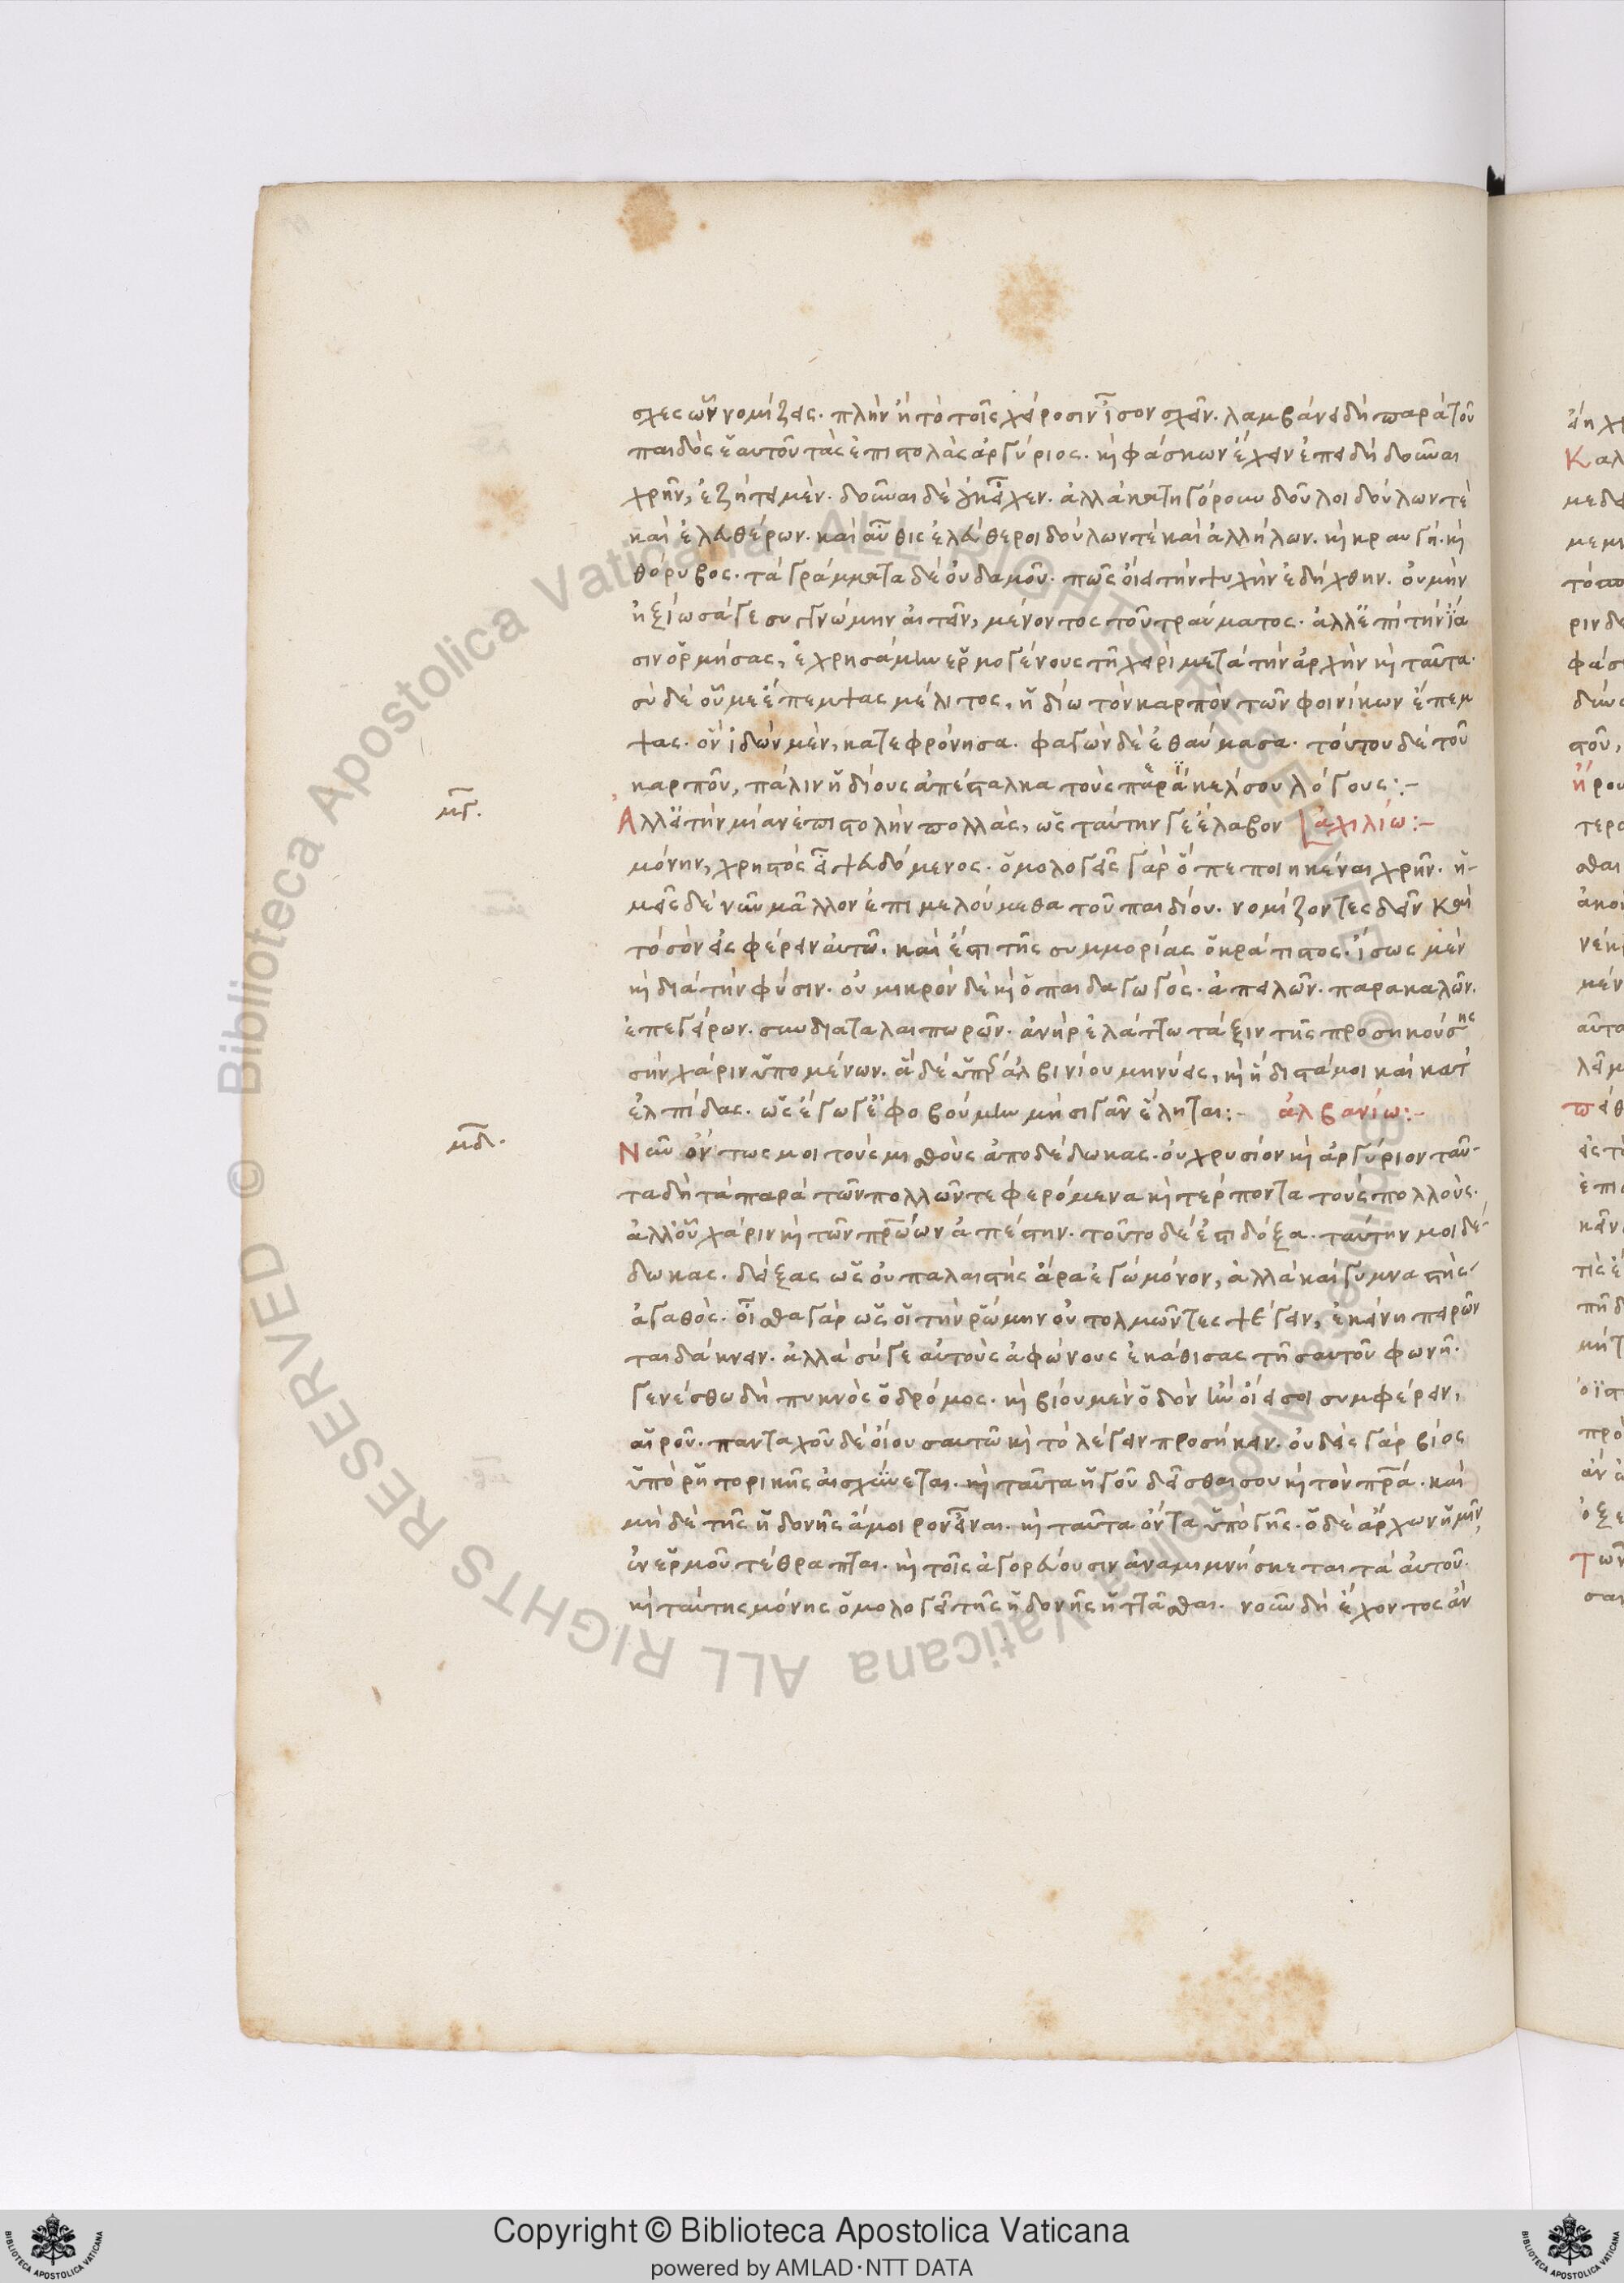 σχες ὧν νομίζεις. πλὴν ἢ τὸ τοῖς χείροσιν ἴσον σχεῖν. λαμβάνει δὴ παρὰ τοῦ
παιδὸς ἑαυτοῦ τὰς ἐπιστολὰς ἀργύριος. κὶ φάσκων ἔχειν ἐπειδὴ δοῦναι
χρῆν, ἐζήτει μὲν. δοῦναι δὲ εἶχεν. ἀλλὰ κατηγόρουν δοῦλοι δούλων τὲ
καὶ ἐλευθέρων. καὶ αὖθις ἐλεύθεροι δούλων τὲ καὶ ἀλλήλων. κὶ κραυγὴ. κὶ
θόρυβος. τὰ γράμματα δὲ οὐδαμοῦ. πῶς οἴει τὴν ψυχὴν ἐδήχθην. οὐ μὴν
ἠξίωσά γε συγγνώμην αἰτεῖν, μένοντος τοῦ τραύματος. ἀλλ' ἐπὶ τὴν ἴα
σιν ὁρμήσας, ἐχρησάμην ἑρμογένους τῇ χειρὶ μετὰ τὴν ἀρχὴν κὶ ταῦτα.
σὺ δὲ οὗ με ἔπεμψας μέλιτος, ἡδίω τὸν καρπὸν τῶν φοινίκων ἔπεμ
ψας. ὃν ἰδὼν μὲν, κατεφρόνησα. φαγὼν δὲ ἐθαύμασα. τούτου δὲ τοῦ
καρποῦ, πάλιν ἡδίους ἀπέσταλκα τοὺς παρὰ κελσου λόγους:-
μγ. Ἀλλὰ τὴν μίαν ἐπιστολὴν πολλὰς, ὡς ταύτην γε ἔλαβον ἀχιλίω:-
μόνην, χρηστὸς εἶ ψευδόμενος. ὁμολογεῖς γὰρ ὅπερ ποιηκέναι χρῆν. ἡ-
μεῖς δὲ νῦν μᾶλλον ἐπιμελούμεθα τοῦ παιδίου. νομίζοντες δεῖν καὶ
τὸ σὸν εἰσφέρειν αὐτῶ. καὶ ἔστι τῆς συμμορίας ὁ κράτιστος. ἴσως μὲν
κὶ διὰ τὴν φύσιν. οὐ μικρὸν δὲ κὶ ὁ παιδαγωγὸς. ἀπειλῶν. παρακαλῶν.
ἐπεγείρων. συνδιαταλαιπωρῶν. ἀνὴρ ἐλάττω τάξιν τῆς προσηκούσης
σὴν χάριν ὑπομένων. ἃ δὲ ὑπὲρ ἀλβινίου μηνύεις, κὶ ἥδιστά μοι καὶ κατ
ἐλπίδας. ὡς ἔγωγε ἐφοβούμην μὴ σιγᾶν ἕληται:- ἀλβανίω:-
μδ. Νῦν ὄντως μοι τοὺς μισθοὺς ἀποδέδωκας. οὐ χρυσίον κὶ ἀργύριον ταῦ-
τα δὴ τὰ παρὰ τῶν πολλῶν τε φερόμενα κὶ τέρποντα τους πολλοὺς.
ἀλλ' οὗ χάριν κὶ τῶν πρώων ἀπέστην. τοῦτο δέ ἐστι δόξα. ταύτην μοι δέ-
δωκας. δείξας ὡς οὐ παλαιστὴς ἄρα ἐγὼ μόνον, ἀλλὰ καὶ γυμναστὴς
ἀγαθὸς. οἶσθα γὰρ ὡς οἱ τὴν ῥώμην οὐ τολμῶντες ψέγειν, ἐκείνῃ πειρῶν
ται δάκνειν. ἀλλὰ σύ γε αὐτοὺς ἀφώνους ἐκάθισας τῇ σαυτοῦ φωνῇ.
γενέσθω δὴ πυκνὸς ὁ δρόμος. κὶ βίου μὲν ὁδὸν ἣν οἴει σοι συμφέρειν,
αἱροῦ. πανταχοῦ δὲ οἴου σαυτῶ κὶ τὸ λέγειν προσήκειν. οὐδεὶς γὰρ βίος
ὑπὸ ῥητορικῆς αἰσχύνεται. κὶ ταῦτα ἡγοῦ δεῖσθαι σου κὶ τὸν πρα. καὶ
μὴ δὲ τῆς ἡδονῆς ἄμοιρον εἶναι. κὶ ταῦτα ὄντα ὑπὸ γῆς. ὁ δὲ ἄρχων ἡμῖν
ἐν ἑρμοῦ τέθραπται. κὶ τοῖς ἀγορεύουσιν ἀναμιμνήσκεται τὰ αὐτοῦ.
κὶ ταύτης μόνης ὁμολογεῖ τῆς ἡδονῆς ἡττᾶσθαι. νοῦν δὴ ἔχοντος ἂν
© Biblioteca Apostolica Vaticana ALL RIGHTS RESERVED
© Biblioteca Apostolica Vaticana ALL RIGHTS RESERVED
Copyright © Biblioteca Apostolica Vaticana
powered by AMLAD·NTT DATA
BIBLIOTECA APOSTOLICA VATICANA
BIBLIOTECA APOSTOLICA VATICANA